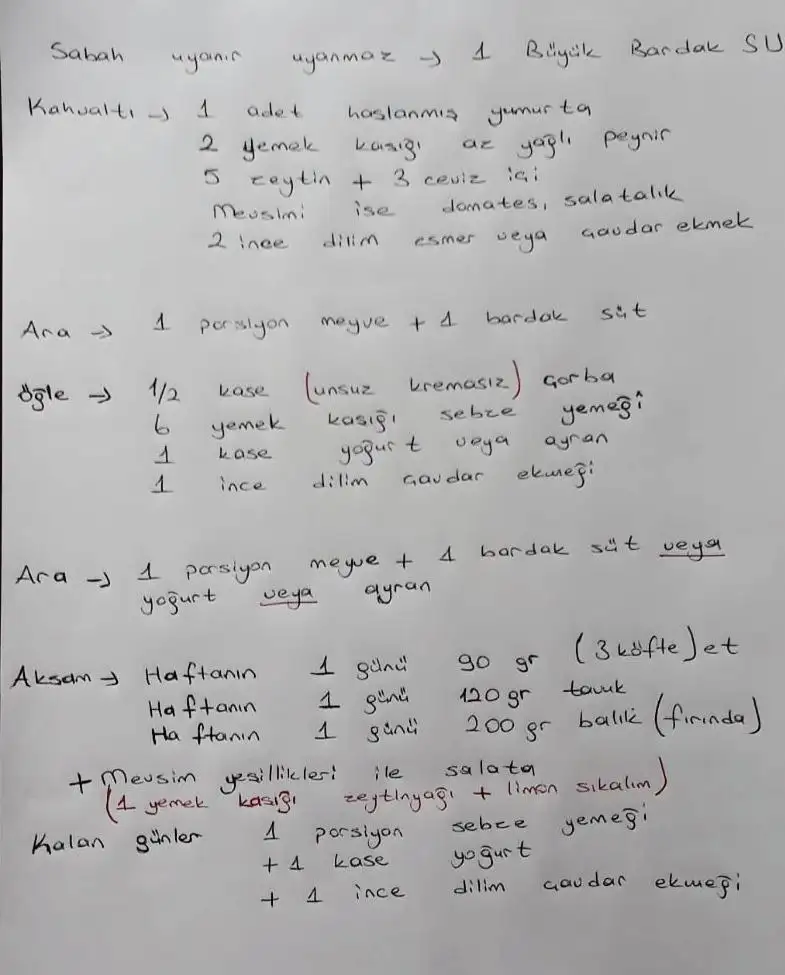 Sabah uyanır uyanmaz → 1 Büyük Bardak SU
Kahvaltı → 1 adet haşlanmış yumurta
2 yemek kaşığı az yağlı peynir
5 zeytin + 3 ceviz içi
Mevsimi ise domates, salatalık
2 ince dilim esmer veya çavdar ekmek
Ara → 1 porsiyon meyve + 1 bardak süt
Öğle → 1/2 kase (unsuz kremasız) çorba
6 yemek kaşığı sebze yemeği
1 kase yoğurt veya ayran
1 ince dilim çavdar ekmeği
Ara → 1 porsiyon meyve + 1 bardak süt veya
yoğurt veya ayran
Akşam → Haftanın 1 günü 90 gr (3 köfte) et
Haftanın 1 günü 120 gr tavuk
Haftanın 1 günü 200 gr balık (fırında)
+ Mevsim yeşillikleri ile salata
(1 yemek kaşığı zeytinyağı + limon sıkalım)
Kalan günler 1 porsiyon sebze yemeği
+ 1 kase yoğurt
+ 1 ince dilim çavdar ekmeği